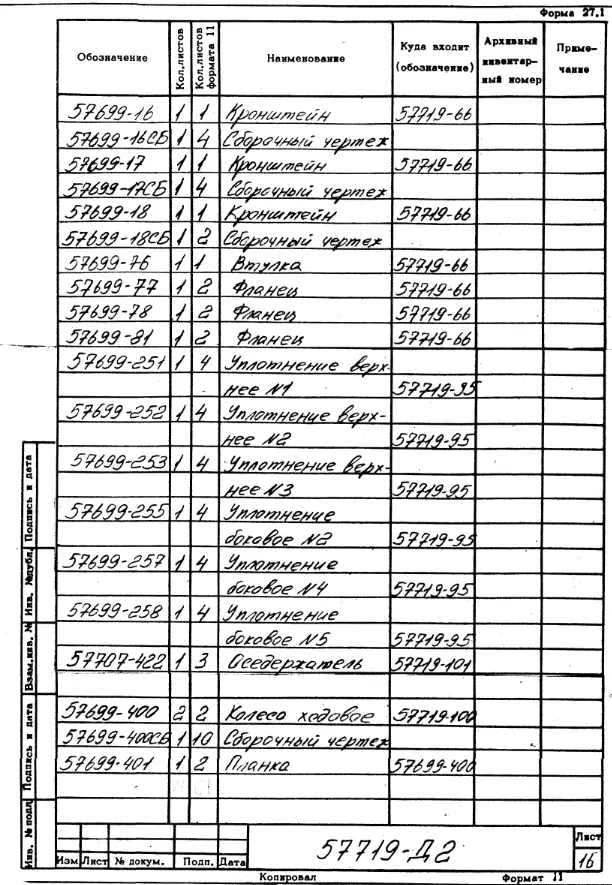 Форма 27.1
Обозначение Кол.листов Кол.листов формата 11 Наименование Куда входит (обозначение) Архивный инвентарный номер Примечание
57699-16 1 1 Кронштейн 57719-66
57699-16СБ 1 4 Сборочный чертеж
57699-17 1 1 Кронштейн 57719-66
57699-17СБ 1 4 Сборочный чертеж
57699-18 1 1 Кронштейн 57719-66
57699-18СБ 1 2 Сборочный чертеж
57699-76 1 1 Втулка 57719-66
57699-77 1 2 Фланец 57719-66
57699-78 1 2 Фланец 57719-66
57699-81 1 2 Фланец 57719-66
57699-251 1 4 Уплотнение верх-
нее №1 57719-95
57699-252 1 4 Уплотнение верх-
нее №2 57719-95
57699-253 1 4 Уплотнение верх-
нее №3 57719-95
57699-255 1 4 Уплотнение
боковое №2 57719-95
57699-257 1 4 Уплотнение
боковое №4 57719-95
57699-258 1 4 Уплотнение
боковое №5 57719-95
57707-422 1 3 Оседержатель 57719-101
57699-400 2 2 Колесо ходовое 57719-100
57699-400СБ 1 10 Сборочный чертеж
57699-401 1 2 Планка 57699-400
Подпись и дата
Инв. №дубл.
Взам.инв. №
Подпись и дата
Инв. № подл.
Изм Лист № докум. Подп. Дата
57719-Д2
Лист
16
Копировал Формат 11